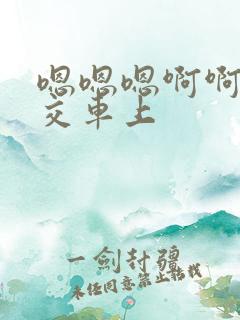 嗯嗯嗯啊啊
交车上
一剑封疆
未经同意禁止转载